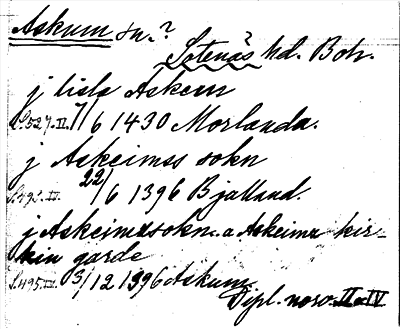 Askum sn.?
Sotenäs? hd. Boh.
j lisla Askem
S.527.II. 7/6 1430 Morlanda.
j Askeimss sokn
S.495.IV. 22/6 1396 Bjalland.
j Askeimssokn. a Askeims kir-
kiu garde
S.495.IV. 3/12 1396 Askum.
Dipl. norv. II o IV